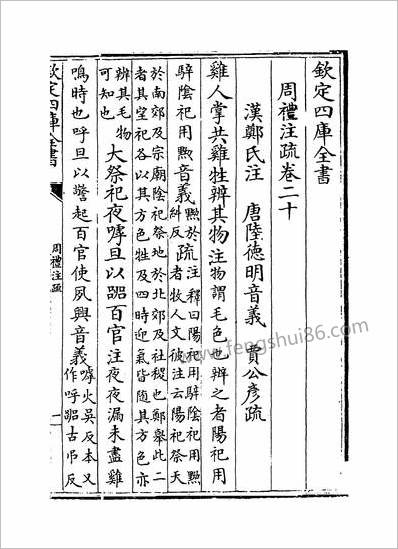 欽定四庫全書
周禮注疏卷二十
漢鄭氏注 唐陸德明音義 賈公彥疏
雞人掌共雞牲辨其物注物謂毛色也辨之者陽祀用
騂陰祀用黝音義黝於糾反疏注釋曰陽祀用騂陰祀用黝者牧人文彼注云陽祀祭天
於南郊及宗廟陰祀祭地於北郊及社稷也鄭舉此二
者其望祀各以其方色牲及四時迎氣皆隨其方色亦
辨其毛物可知也 大祭祀夜嘑旦以嘂百官注夜夜漏未盡雞
鳴時也呼旦以警起百官使夙興音義嘑火吳反本又作呼嘂古吊反
欽定四庫全書
周禮注疏
一
www.fengshui86.com